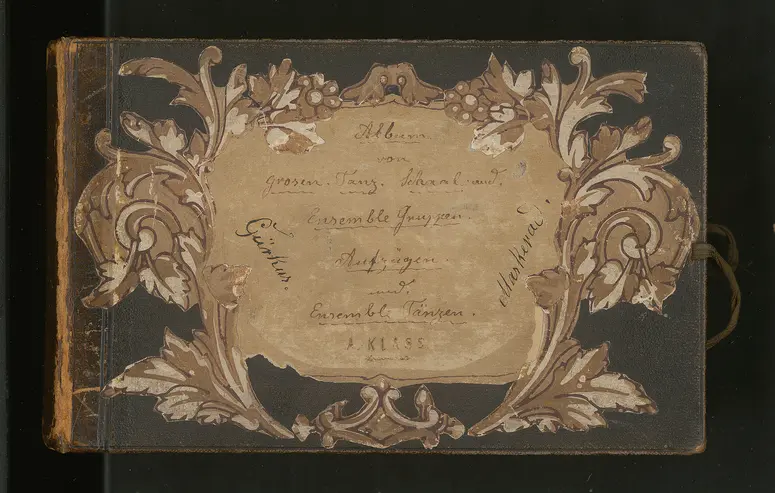 Album
von
grosen. Tanz. Schaal. und.
Ensemble Gruppen.
Aufzügen.
und.
Ensemble Tänzen.
A. KLASS
Gürkus.
Maskerad.